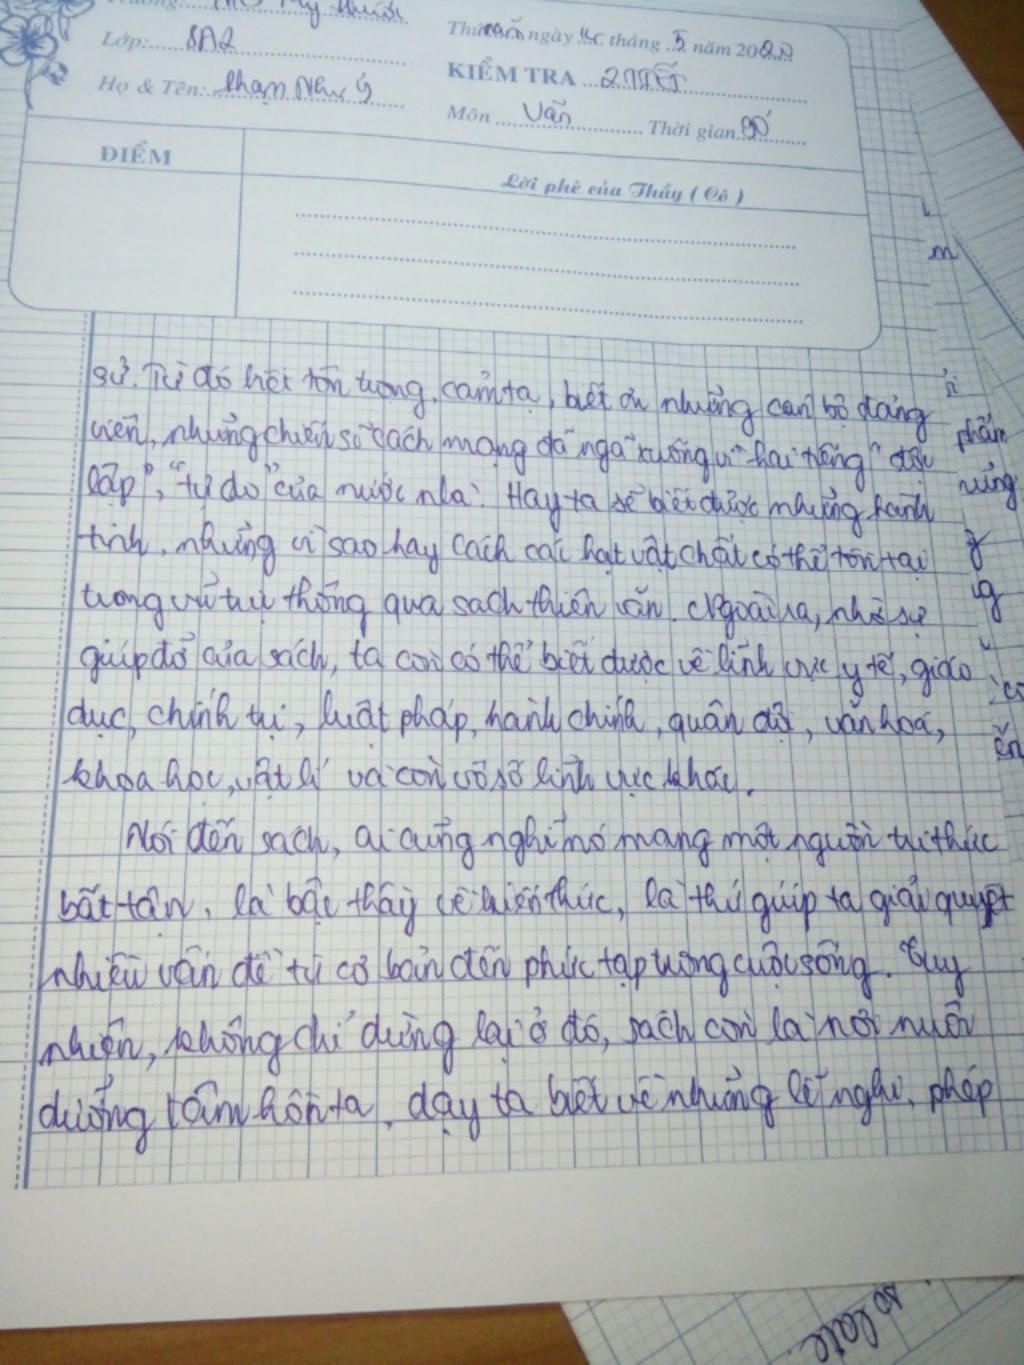 Lớp: 8A2
Thứ năm ngày tháng 5 năm 2022
Họ & Tên: Phạm Như Ý
KIỂM TRA 2 TIẾT
Môn Văn Thời gian 90'
ĐIỂM
Lời phê của Thầy ( Cô )
sử. Từ đó hết tôn trọng, cảm tạ, biết ơn những cán bộ đảng
viên, những chiến sĩ cách mạng đã ngã xuống vì hai tiếng "độc
lập", "tự do" của nước nhà. Hay ta sẽ biết được những hành
tinh, những vì sao hay cách các hạt vật chất có thể tồn tại
trong vũ trụ thông qua sách thiên văn. Ngoài ra, nhờ sự
giúp đỡ của sách, ta còn có thể biết được về lĩnh vực y tế, giáo
dục, chính trị, luật pháp, hành chính, quân đội, văn hoá,
khoa học, vật lí và còn vô số lĩnh vực khác.
Nói đến sách, ai cũng nghĩ nó mang một nguồn tri thức
bất tận, là bậc thầy về kiến thức, là thứ giúp ta giải quyết
nhiều vấn đề từ cơ bản đến phức tạp trong cuộc sống. Tuy
nhiên, không chỉ dừng lại ở đó, sách còn là nơi nuôi
dưỡng tâm hồn ta, dạy ta biết về những lễ nghi, phép